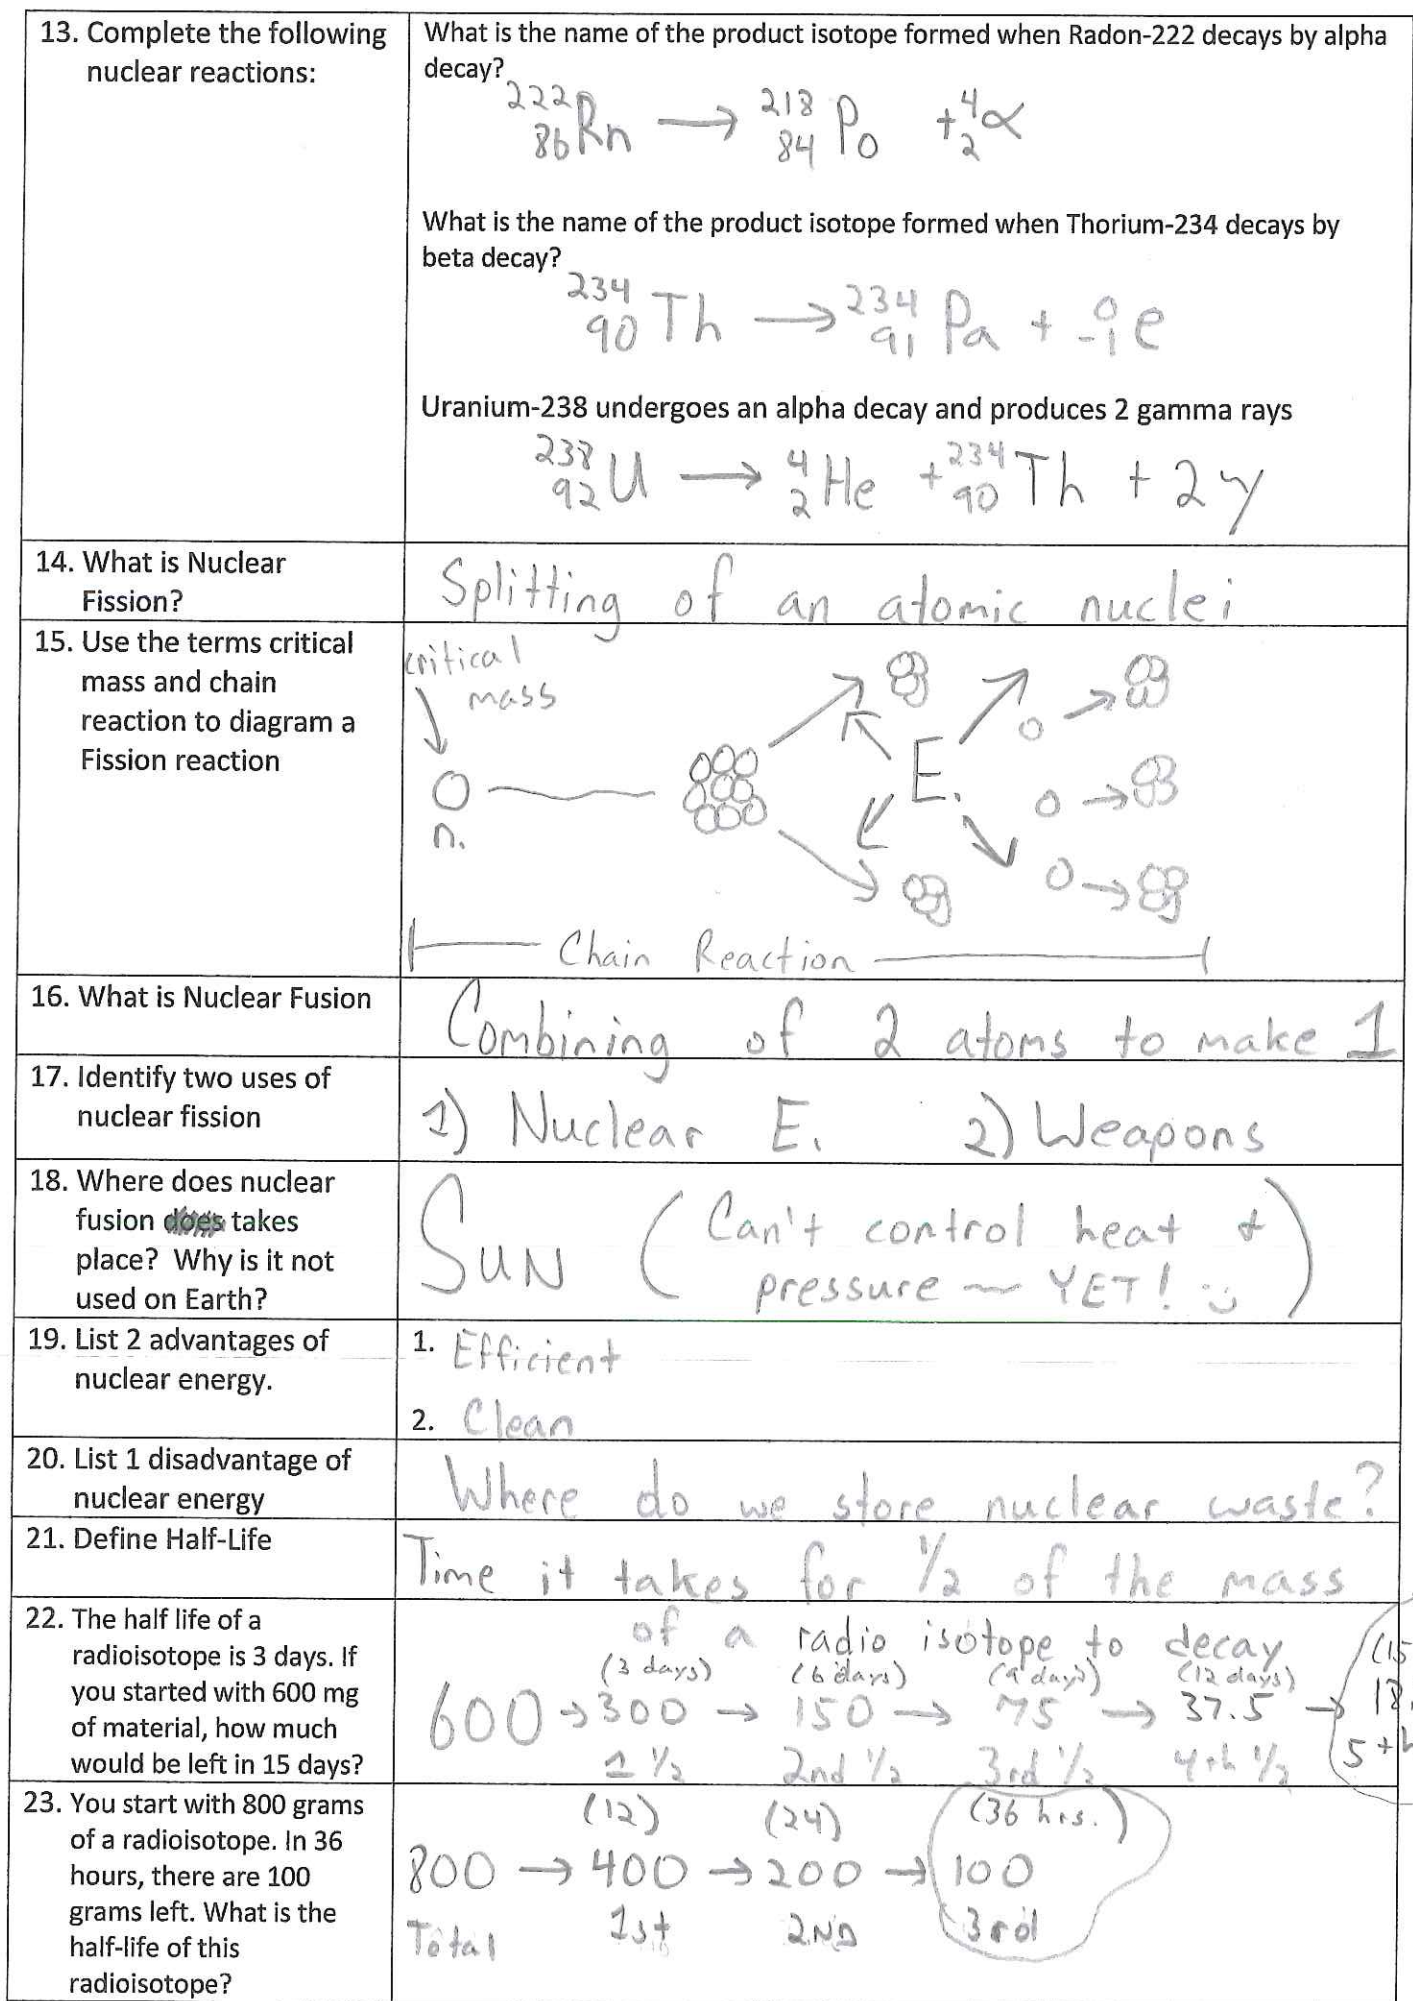 13. Complete the following
nuclear reactions:
What is the name of the product isotope formed when Radon-222 decays by alpha
decay?
²²²₈₆Rn → ²¹⁸₈₄Po + ⁴₂α
What is the name of the product isotope formed when Thorium-234 decays by
beta decay?
²³⁴₉₀Th → ²³⁴₉₁Pa + ⁰₋₁e
Uranium-238 undergoes an alpha decay and produces 2 gamma rays
²³⁸₉₂U → ⁴₂He + ²³⁴₉₀Th + 2γ
14. What is Nuclear
Fission?
Splitting of an atomic nuclei
15. Use the terms critical
mass and chain
reaction to diagram a
Fission reaction
critical
mass
n.
E.
Chain Reaction
16. What is Nuclear Fusion
Combining of 2 atoms to make 1
17. Identify two uses of
nuclear fission
1) Nuclear E. 2) Weapons
18. Where does nuclear
fusion does takes
place? Why is it not
used on Earth?
SUN (Can't control heat +
pressure ~ YET! :)
19. List 2 advantages of
nuclear energy.
1. Efficient
2. Clean
20. List 1 disadvantage of
nuclear energy
Where do we store nuclear waste?
21. Define Half-Life
Time it takes for 1/2 of the mass
of a radio isotope to decay
22. The half life of a
radioisotope is 3 days. If
you started with 600 mg
of material, how much
would be left in 15 days?
(3 days) (6 days) (9 days) (12 days) (15
600 → 300 → 150 → 75 → 37.5 → 18.
1 1/2 2nd 1/2 3rd 1/2 4th 1/2 5th
23. You start with 800 grams
of a radioisotope. In 36
hours, there are 100
grams left. What is the
half-life of this
radioisotope?
(12) (24) (36 hrs.)
800 → 400 → 200 → 100
Total 1st 2ND 3rd